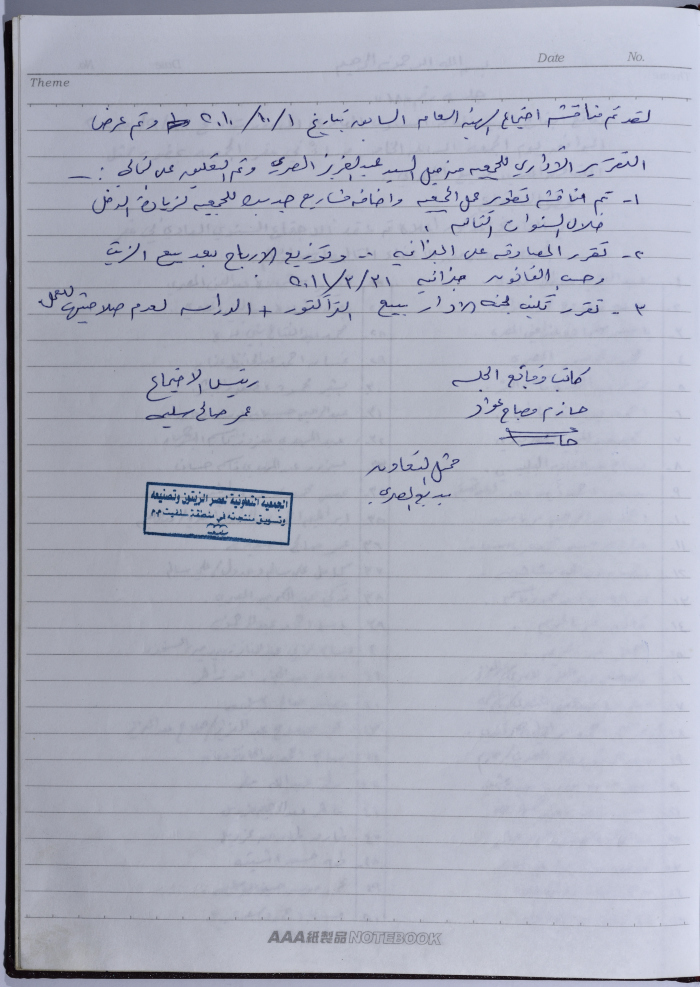 Date No.
Theme
لقد تم مناقشة اجتماع الهيئة العامة السابق بتاريخ ٢٠١٠/١٠/١ وتم عرض
التقرير الاداري للجمعيه من قبل السيد عبد العزيز المصري وتم التعليق على التالي :-
١- تم مناقشة تطوير عمل الجمعيه واضافه مشاريع جديده للجمعيه لزيادة الدخل
خلال السنوات القادمه .
٢- تقرر المصادقه على الميزانيه - وتوزيع الارباح بعد بيع الزيت
وحسب القانون ميزانيه ٢٠١١/٣/٣١
٣- تقرر تكليف لجنة الادارة ببيع التراكتور + الدراسه لعدم صلاحيتها للعمل
كاتب وقائع الجلسه رئيس الاجتماع
حازم مصباح عواد عمر صالح سليمه
ممثل التعاون
الجمعية التعاونية لعصر الزيتون وتصنيعه
وتسويق منتجاته في منطقة سلفيت م.م
AAA紙製品 NOTEBOOK